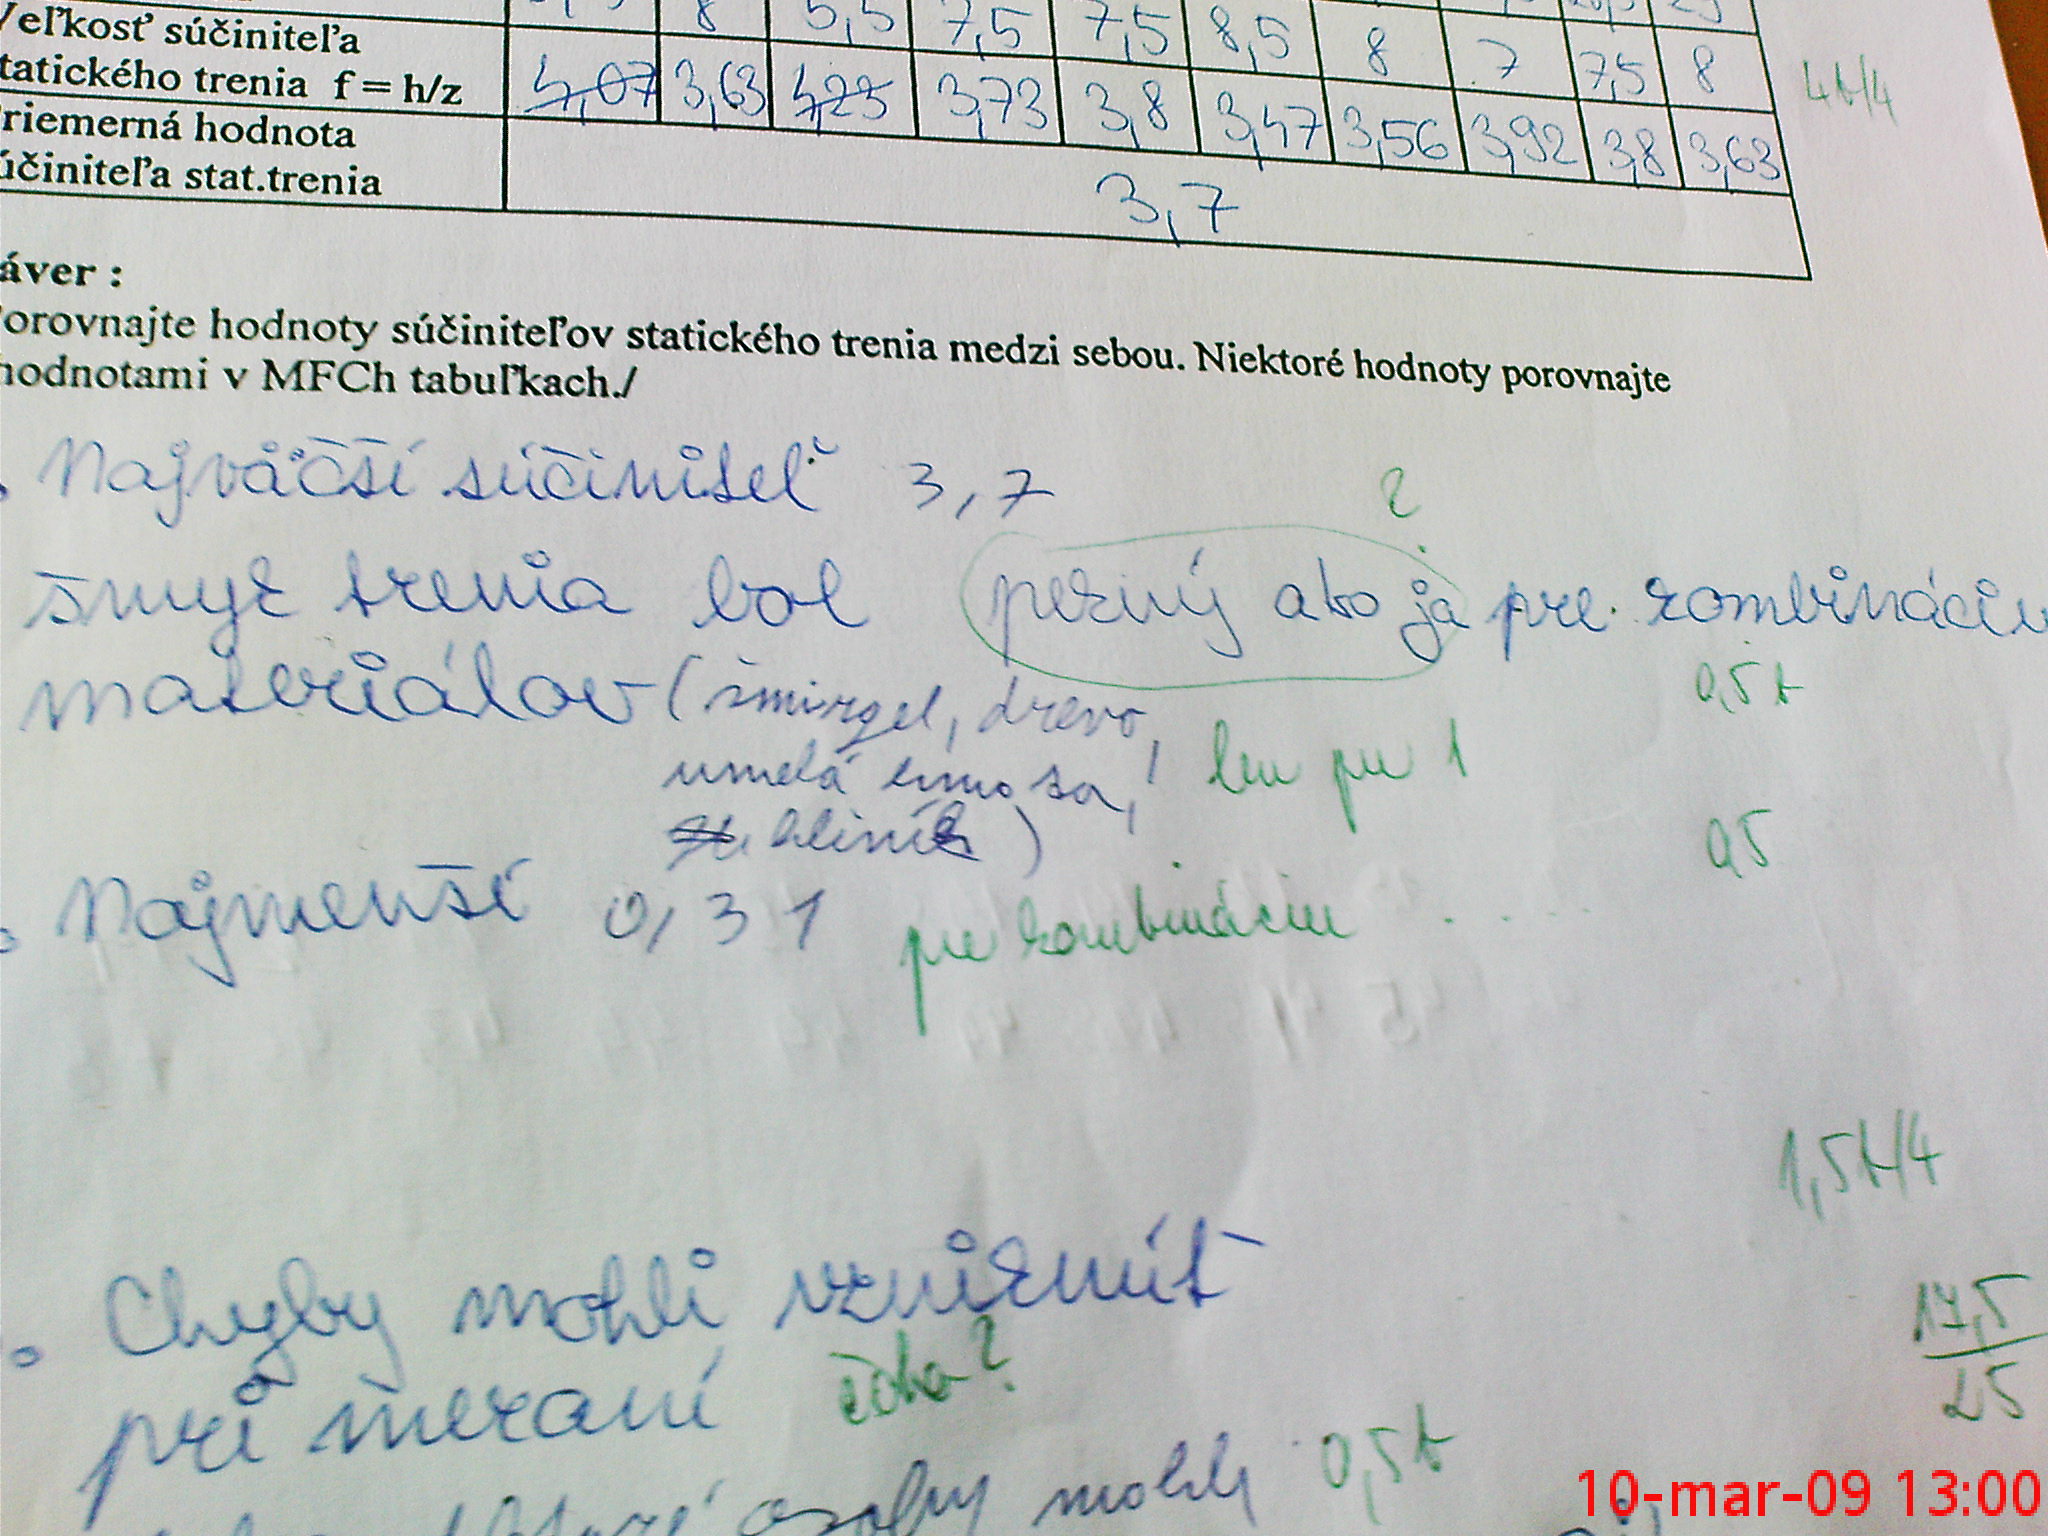 8 5,5 7,5 7,5 8,5 8 7 7,5 8
Veľkosť súčiniteľa
statického trenia f = h/z 4,07 3,63 4,23 3,73 3,8 3,47 3,56 3,92 3,8 3,63
4b/4
Priemerná hodnota
súčiniteľa stat.trenia 3,7
áver :
Porovnajte hodnoty súčiniteľov statického trenia medzi sebou. Niektoré hodnoty porovnajte
hodnotami v MFCh tabuľkach./
Najväčší súčiniteľ 3,7
?
šmyk trenia bol pekný ako ja pre kombináciu
materiálov (šmirgel, drevo,
0,5b
umelá hmota,
len pre 1
hliník)
0,5
Najmenší 0,31 pre kombináciu ....
1,5b/4
Chyby mohli vzniknúť
17,5
25
pri meraní čoho?
osoby mohli 0,5b
10-mar-09 13:00